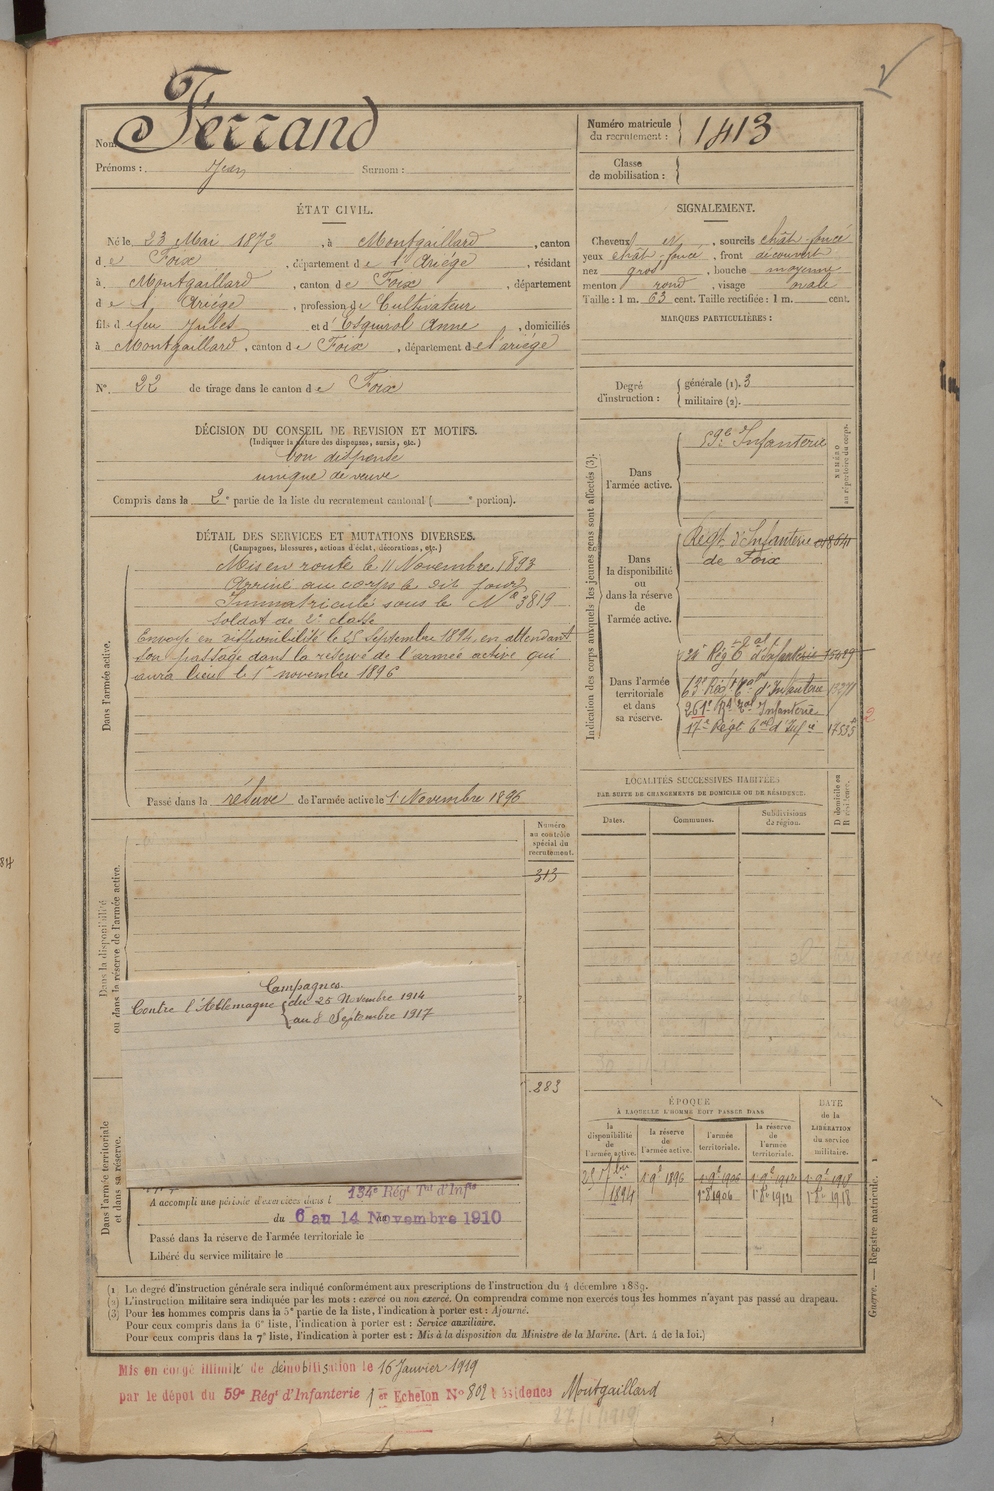 Nom Ferrand
Prénoms : Jean Surnom :
Numéro matricule du recrutement : 1413
Classe de mobilisation :
ÉTAT CIVIL.
Né le 23 Mai 1872, à Montgaillard, canton
de Foix, département de l'Ariége, résidant
à Montgaillard, canton de Foix, département
de l'Ariége, profession de Cultivateur
fils de feu Jules et d'Esquirol Anne, domiciliés
à Montgaillard, canton de Foix, département de l'ariége
N° 22 de tirage dans le canton de Foix
SIGNALEMENT.
Cheveux N, sourcils chât. foncé
yeux chât. foncé, front découvert
nez gros, bouche moyenne
menton rond, visage ovale
Taille : 1 m. 63 cent. Taille rectifiée : 1 m. cent.
MARQUES PARTICULIÈRES :
Degré d'instruction : générale (1). 3
militaire (2).
DÉCISION DU CONSEIL DE REVISION ET MOTIFS.
(Indiquer la nature des dispenses, sursis, etc.)
bon dispense
unique de veuve
Compris dans la 2e partie de la liste du recrutement cantonal ( e portion).
DÉTAIL DES SERVICES ET MUTATIONS DIVERSES.
(Campagnes, blessures, actions d'éclat, décorations, etc.)
Dans l'armée active.
Mis en route le 11 Novembre 1893
Arrivé au corps le dit jour
Immatriculé sous le N° 3819
soldat de 2e classe
Envoyé en disponibilité le 25 Septembre 1894, en attendant
son passage dans la réserve de l'armée active qui
aura lieu le 1er novembre 1896
Passé dans la réserve de l'armée active le 1 Novembre 1896
Indication des corps auxquels les jeunes gens sont affectés (3).
NUMÉRO au répertoire du corps.
Dans l'armée active.
59e d'Infanterie
Dans la disponibilité ou dans la réserve de l'armée active.
Régt d'Infanterie
de Foix
Dans l'armée territoriale et dans sa réserve.
261e Rt Tal Infanterie
17e Régt Tal d'Infie
Numéro au contrôle spécial du recrutement.
313
283
Dans la disponibilité ou dans la réserve de l'armée active.
Campagnes
Contre l'Allemagne du 25 Novembre 1914
au 8 Septembre 1917
Dans l'armée territoriale et dans sa réserve.
A accompli une période d'exercices dans l 134e Régt Tal d'Infie
du 6 au 14 Novembre 1910
Passé dans la réserve de l'armée territoriale le
Libéré du service militaire le
LOCALITÉS SUCCESSIVES HABITÉES
PAR SUITE DE CHANGEMENTS DE DOMICILE OU DE RÉSIDENCE.
Dates. Communes. Subdivisions de région. D domicile ou R résidence.
ÉPOQUE À LAQUELLE L'HOMME DOIT PASSER DANS
DATE de la LIBÉRATION du service militaire.
la disponibilité de l'armée active. la réserve de l'armée active. l'armée territoriale. la réserve de l'armée territoriale.
25 7bre 1894 1 9e 1896 1 9e 1906 1 9e 1912 1 9e 1918
1er 8e 1906 1er 8e 1912 1er 8e 1918
(1) Le degré d'instruction générale sera indiqué conformément aux prescriptions de l'instruction du 4 décembre 1889.
(2) L'instruction militaire sera indiquée par les mots : exercé ou non exercé. On comprendra comme non exercés tous les hommes n'ayant pas passé au drapeau.
(3) Pour les hommes compris dans la 5e partie de la liste, l'indication à porter est : Ajourné.
Pour ceux compris dans la 6e liste, l'indication à porter est : Service auxiliaire.
Pour ceux compris dans la 7e liste, l'indication à porter est : Mis à la disposition du Ministre de la Marine. (Art. 4 de la loi.)
Guerre. — Registre matricule. 1
Mis en congé illimité de démobilisation le 16 Janvier 1919
par le dépôt du 59e Régt d'Infanterie 1er Echelon N° 802 résidence Montgaillard
27/1/1919